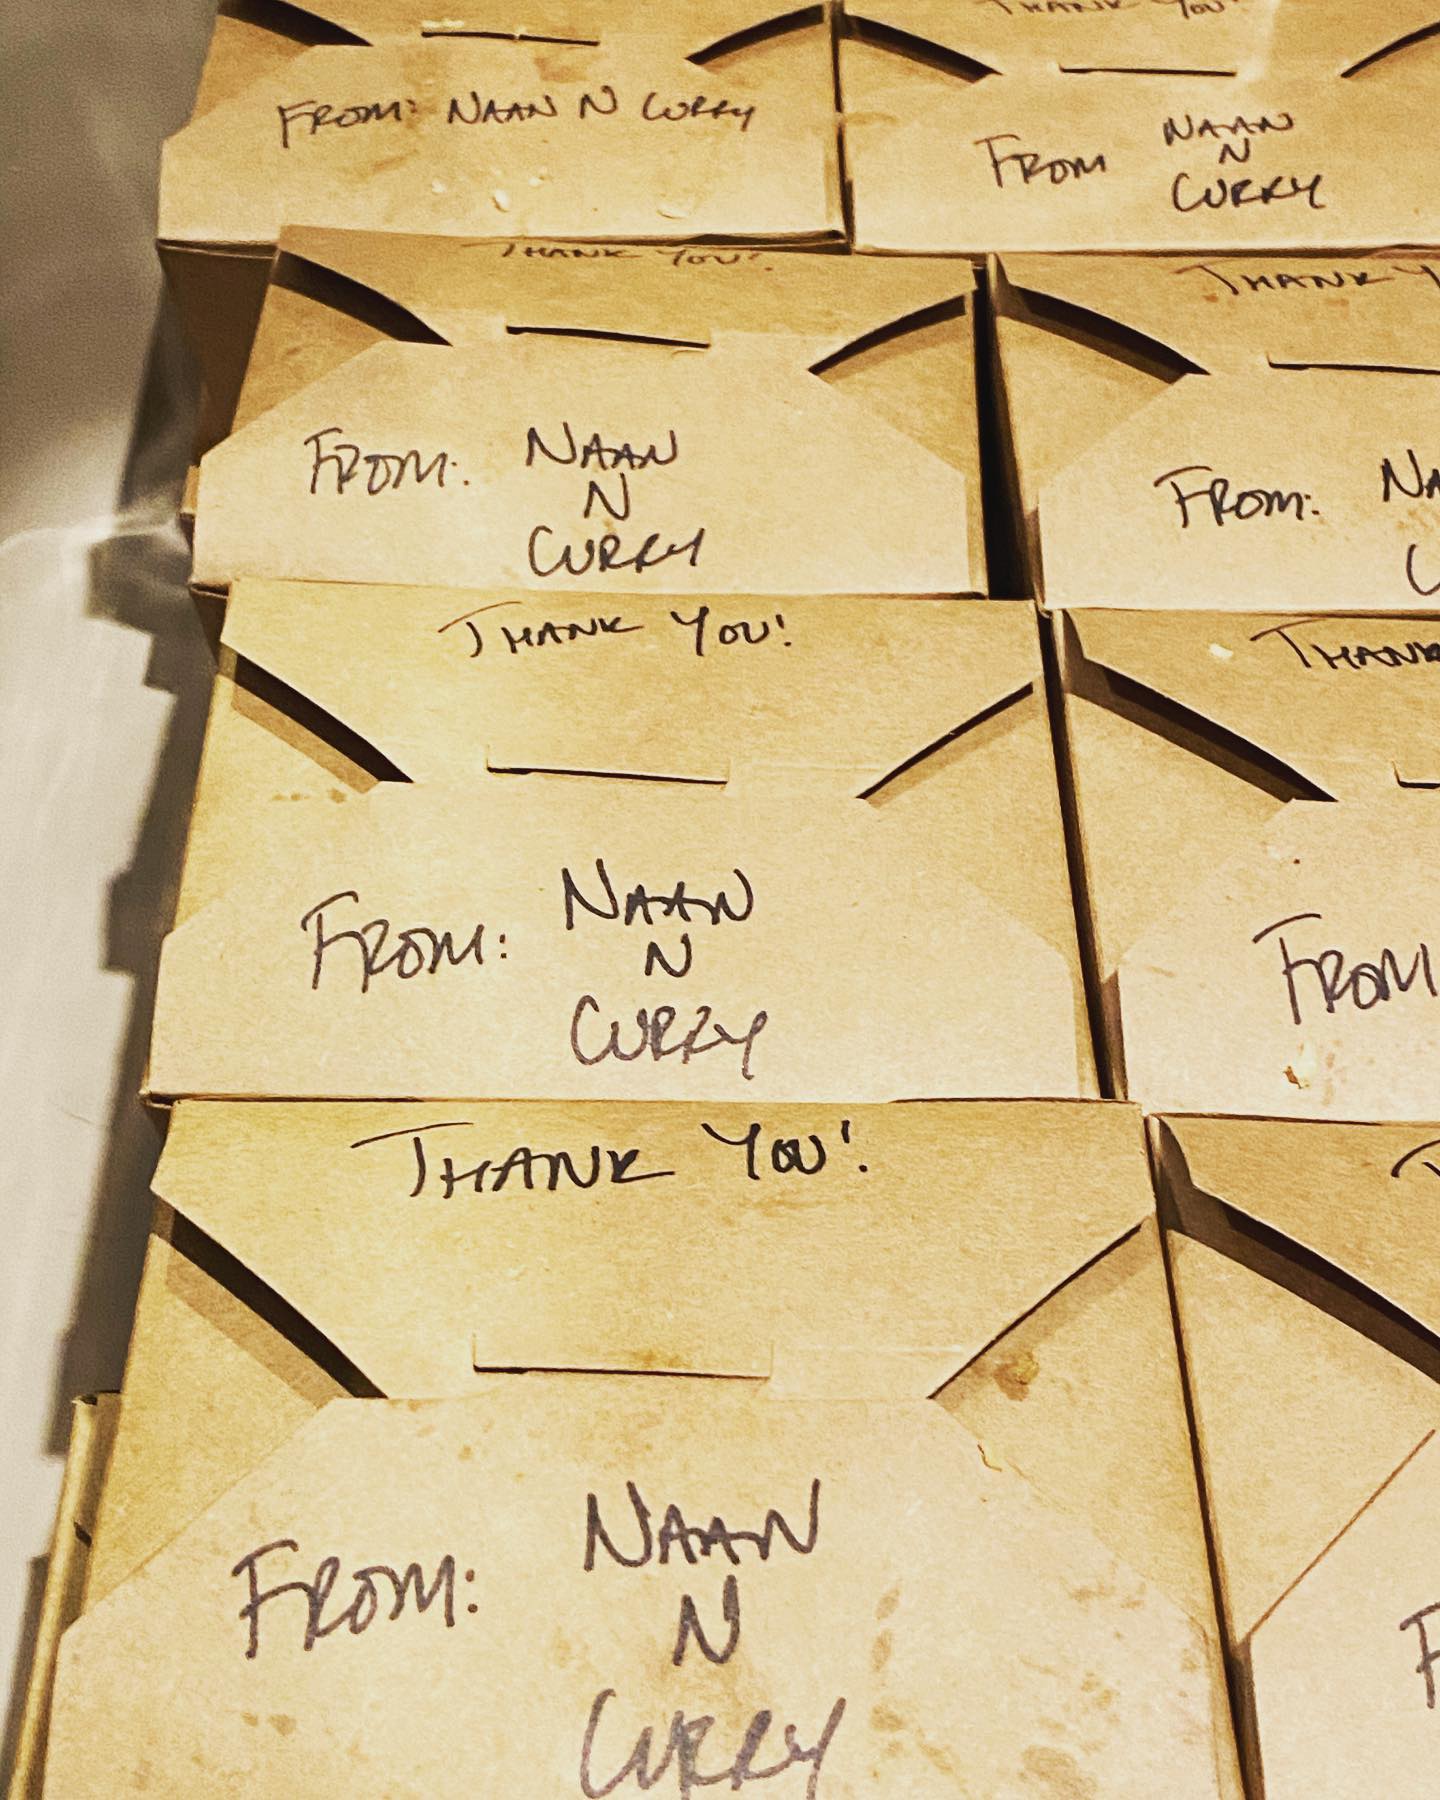 THANK YOU!
FROM: NAAN N CURRY
FROM NAAN
N
CURRY
THANK YOU!
FROM: NAAN
N
CURRY
THANK Y
FROM: NA
C
THANK YOU!
FROM: NAAN
N
CURRY
THANK
FROM
THANK YOU!
FROM: NAAN
N
CURRY
T
F